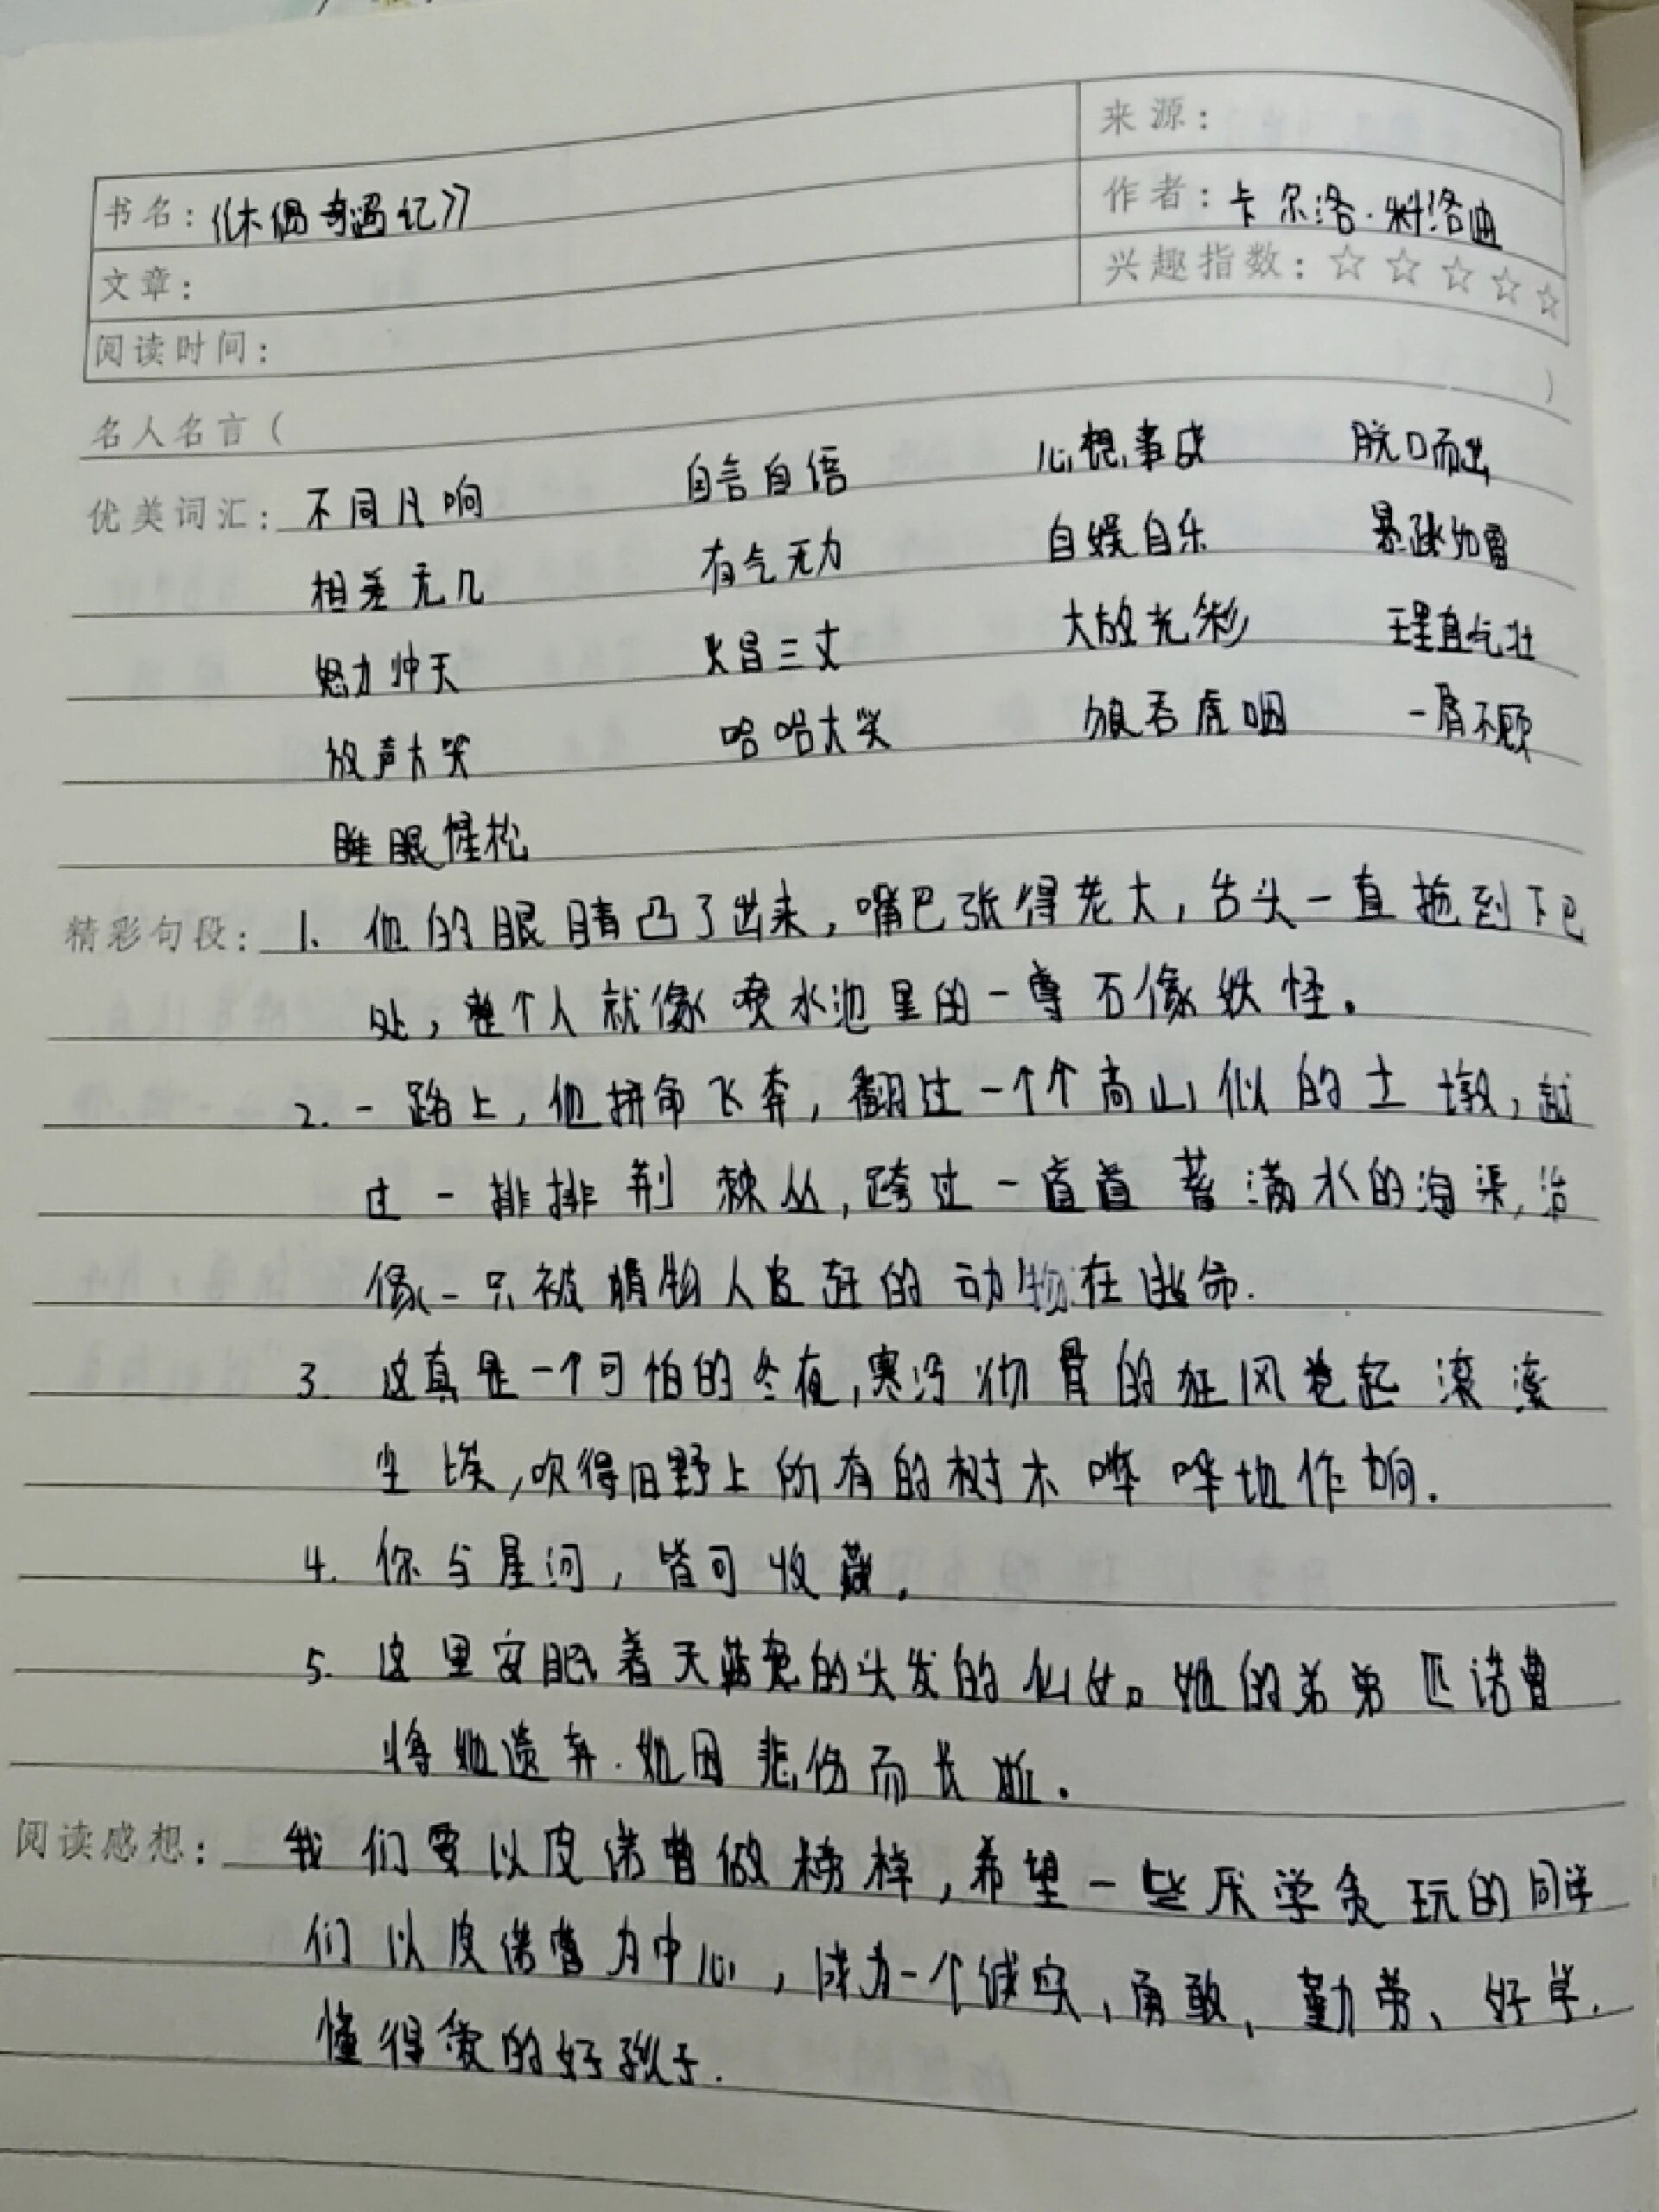 来源：
书名：《木偶奇遇记》
作者：卡尔洛·科洛迪
文章：
兴趣指数：☆☆☆☆☆
阅读时间：
名人名言（ ）
优美词汇：不同凡响 自言自语 心想事成 脱口而出
相差无几 有气无力 自娱自乐 暴跳如雷
怒力冲天 火冒三丈 大放光彩 理直气壮
放声大哭 哈哈大笑 狼吞虎咽 一屑不顾
睡眼惺松
精彩句段：1. 他的眼睛凸了出来，嘴巴张得老大，舌头一直拖到下巴
处，整个人就像喷水池里的一尊石像妖怪。
2. 一路上，他拼命飞奔，翻过一个个高山似的土墩，越
过一排排荆棘丛，跨过一道道蓄满水的沟渠，活
像一只被猎物人追赶的动物在逃命.
3. 这真是一个可怕的冬夜，寒冷彻骨的狂风卷起滚滚
尘埃，吹得田野上所有的树木哗哗地作响.
4. 你与星河，皆可收藏.
5. 这里安眠着天蓝色的头发的仙女。她的弟弟匹诺曹
将她遗弃.她因悲伤而长逝.
阅读感想：我们要以皮诺曹做榜样，希望一些厌学贪玩的同学
们以皮诺曹为中心，成为一个诚实、勇敢、勤劳、好学、
懂得爱的好孩子.